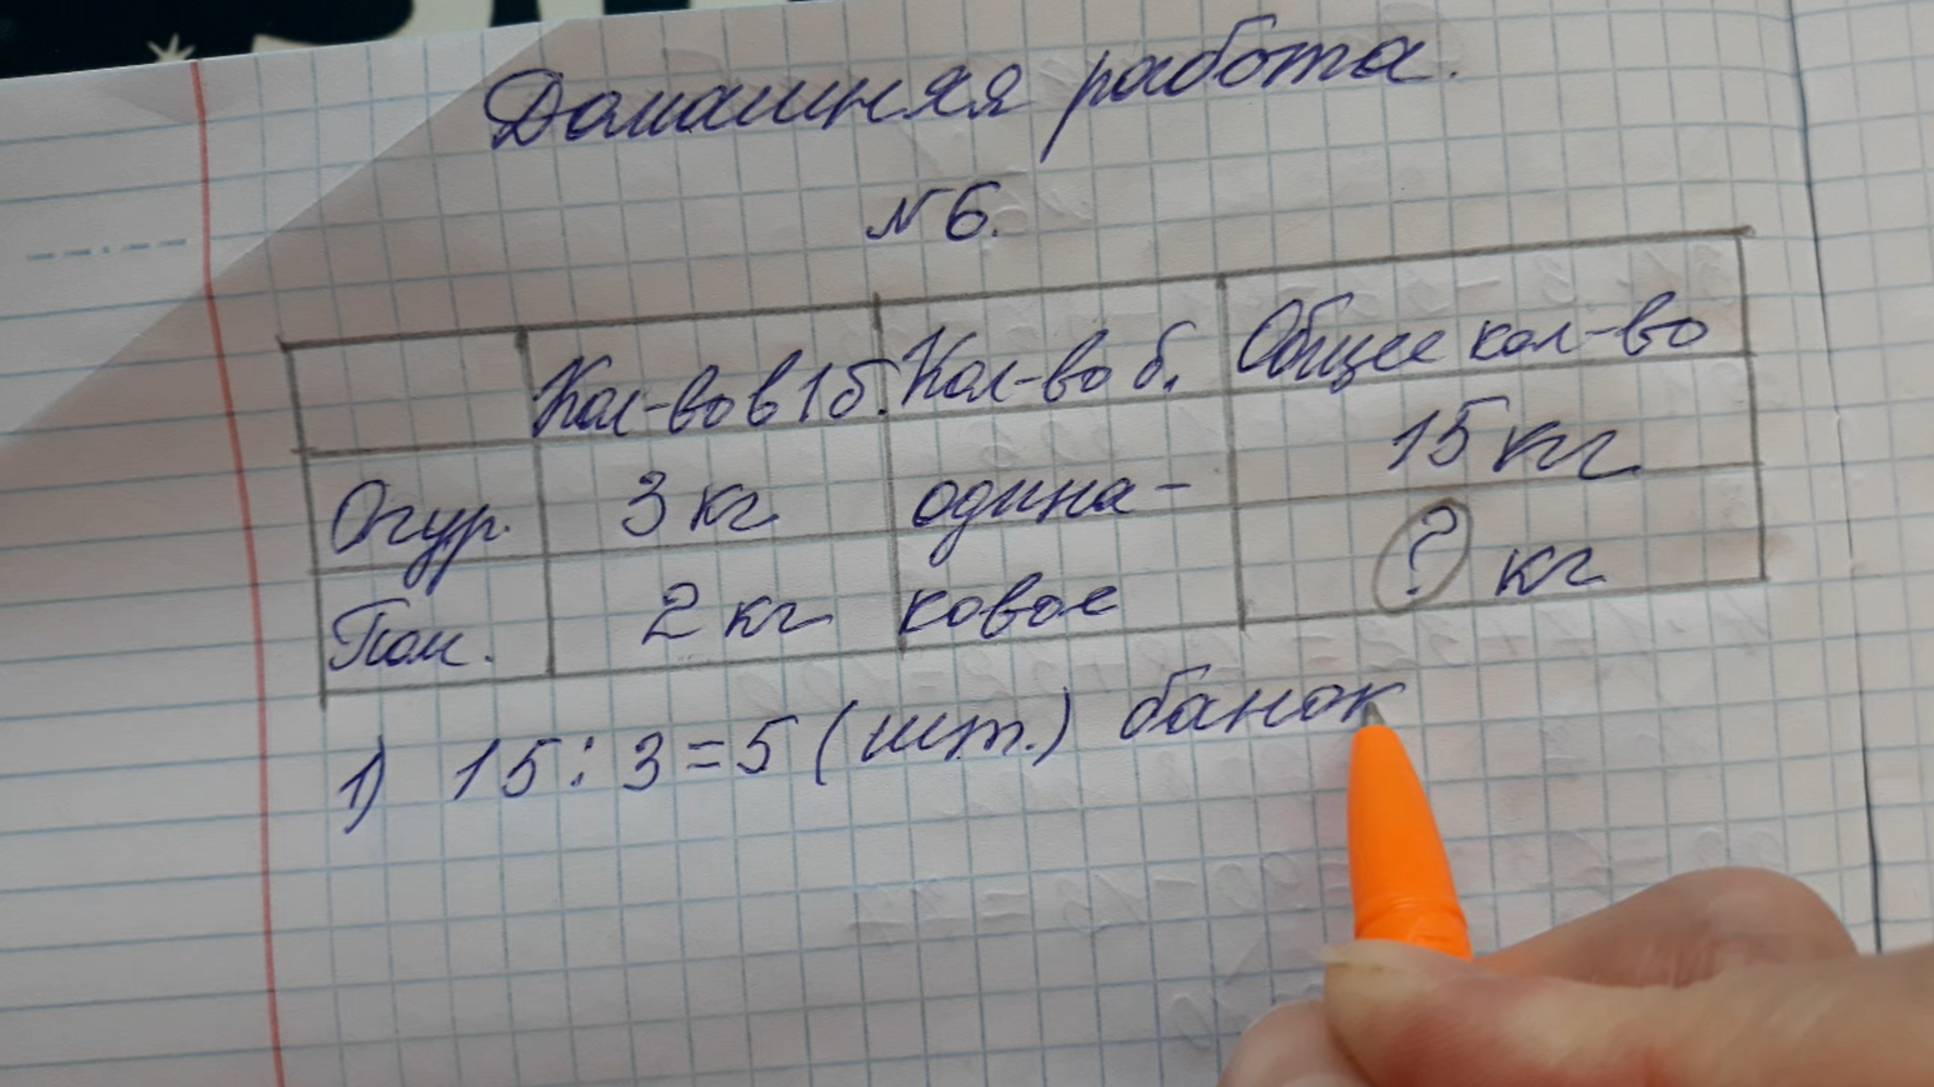 Домашняя работа.
№6.
Кол-во в 1 б. Кол-во б. Общее кол-во
Огур. 3 кг одина- 15 кг
Пом. 2 кг ковое ? кг
1) 15 : 3 = 5 (шт.) банок